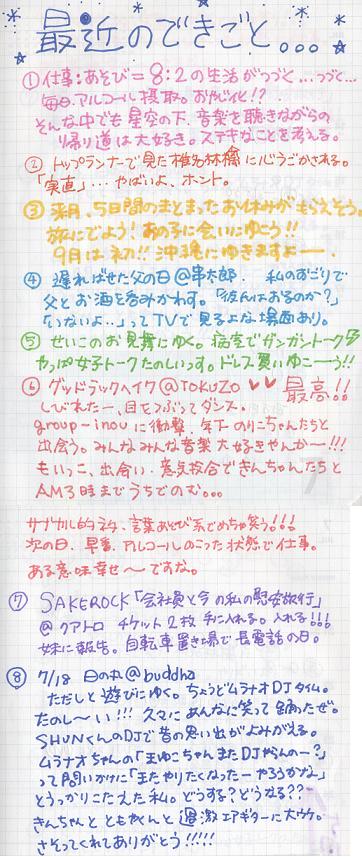 最近のできごと...
①仕事:あそび=8:2の生活がつづく...つづく...
毎日アルコール摂取。おやじ化!?
そんな中でも星空の下、音楽を聴きながらの
帰り道は大好き。ステキなことを考える。
②トップランナーで見た椎名林檎に心うごかされる。
「実直」...やばいよ、ホント。
③来月、5日間のまとまったお休みがもらえそう。
旅にでよう!あの子に会いにゆこう!!
9月は初!!沖縄にゆきますよー。
④遅ればせた父の日@串太郎. 私のおごりで
父とお酒を呑みかわす。「彼氏はおるのか?」
「いないよ...」ってTVで見るよな場面あり。
⑤せいこのお見舞にゆく。病室でガンガントーク!!
やっぱ女子トークたのしいっす。ドレス買いゆこーう!!
⑥グッドラックヘイワ@TOKUZO ♥♥ 最高!!
しびれたー、目をつぶってダンス。
group-inouに衝撃. 年下のりこちゃんたちと
出会う。みんなみんな音楽大好きやんかー!!!
もいっこ、出会い・意気投合できんちゃんたちと
AM3時までうちでのむ。。。
サブカル的ネタ、言葉あそび系でめちゃ笑う!!!
次の日、早番、アルコールのこった状態で仕事。
ある意味幸せ〜ですな。
⑦SAKEROCK「会社員と今の私の慰安旅行」
@クアトロ チケット2枚手に入れる。入れる!!!
妹に報告。自転車置き場で長電話の日。
⑧7/18 日の丸@buddha
ただしと遊びにゆく。ちょうどムラナオDJタイム。
たのし〜い!!! 久々にあんなに笑って踊ったぜ。
SHUNくんのDJで昔の思い出がよみがえる。
ムラナオちゃんの「王ゆこちゃんまたDJやらんのー?」
って問いかけに「またやりたくなったーやろうかな」
とうっかりこたえた私。どうする?どうなる??
きんちゃんとともやくんと過激エアギターに大ウケ。
さそってくれてありがとう!!!!!